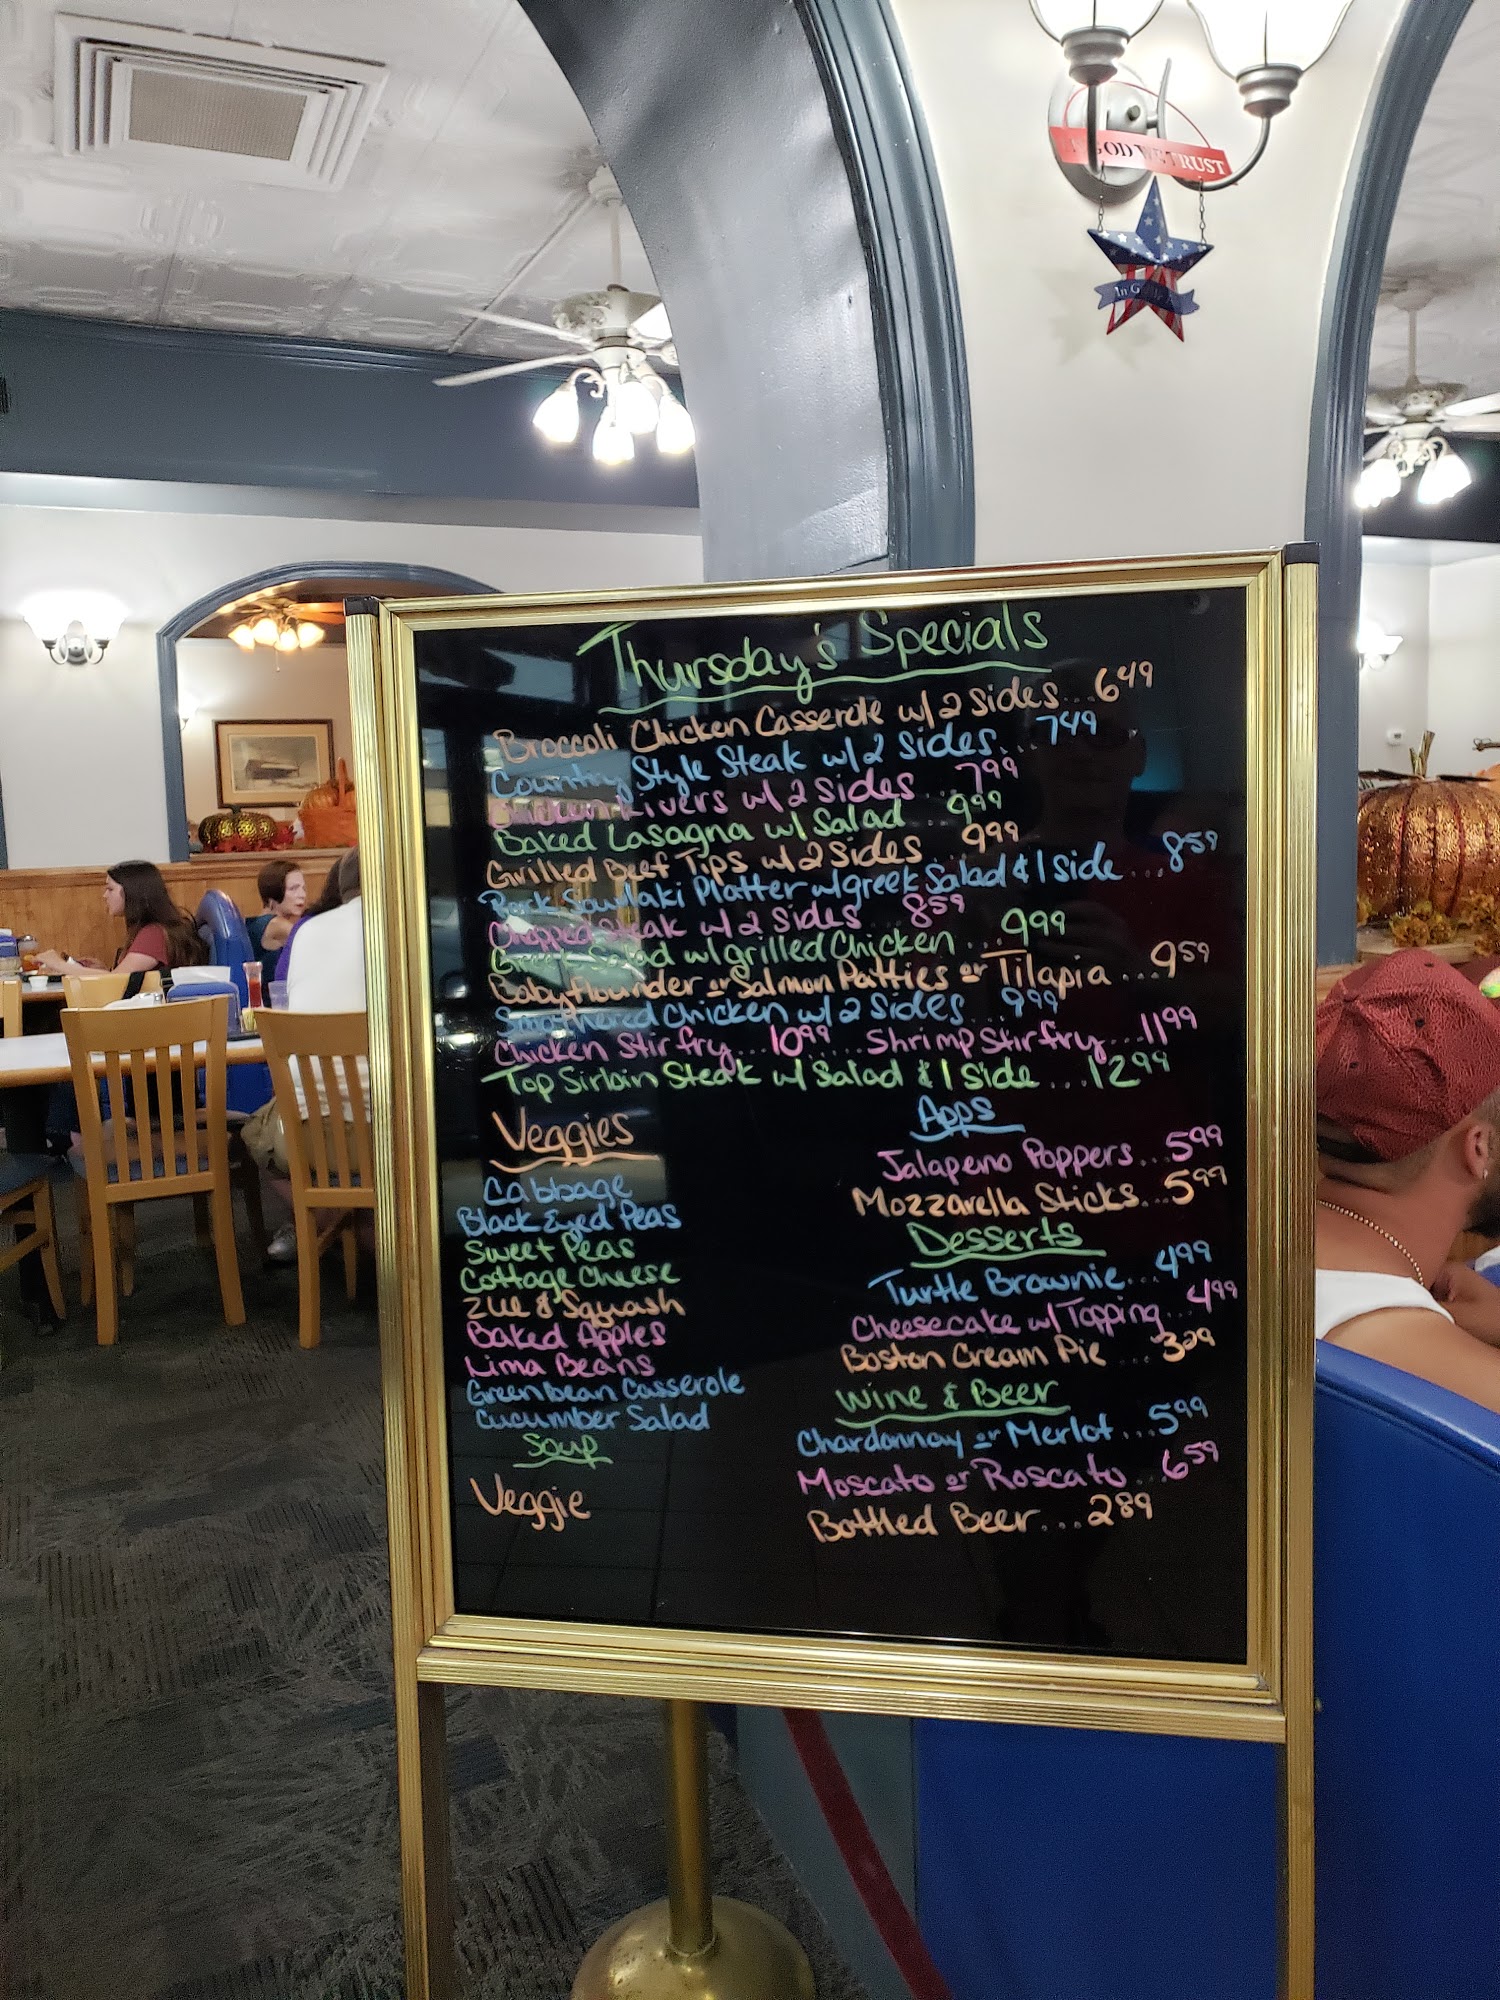 GOD WE TRUST
In G
Thursday's Specials
Broccoli Chicken Casserole w/ 2 Sides... 6.49
Country Style Steak w/ 2 Sides... 7.49
Chicken Livers w/ 2 Sides... 7.99
Baked Lasagna w/ Salad... 9.99
Grilled Beef Tips w/ 2 Sides 9.99
Pork Souvlaki Platter w/ greek Salad & 1 Side... 8.59
Chopped Steak w/ 2 Sides... 8.59
Greek Salad w/ grilled Chicken... 9.99
Baby Flounder or Salmon Patties or Tilapia... 9.59
Smothered Chicken w/ 2 Sides... 9.99
Chicken Stir fry... 10.99... Shrimp Stir fry... 11.99
Top Sirloin Steak w/ Salad & 1 Side... 12.99
Veggies
Cabbage
Black Eyed Peas
Sweet Peas
Cottage Cheese
Zuc & Squash
Baked Apples
Lima Beans
Green Bean Casserole
Cucumber Salad
Soup
Veggie
Apps
Jalapeno Poppers... 5.99
Mozzarella Sticks... 5.99
Desserts
Turtle Brownie... 4.99
Cheesecake w/ Topping... 4.99
Boston Cream Pie... 3.29
Wine & Beer
Chardonnay or Merlot... 5.99
Moscato or Roscato... 6.59
Bottled Beer... 2.89